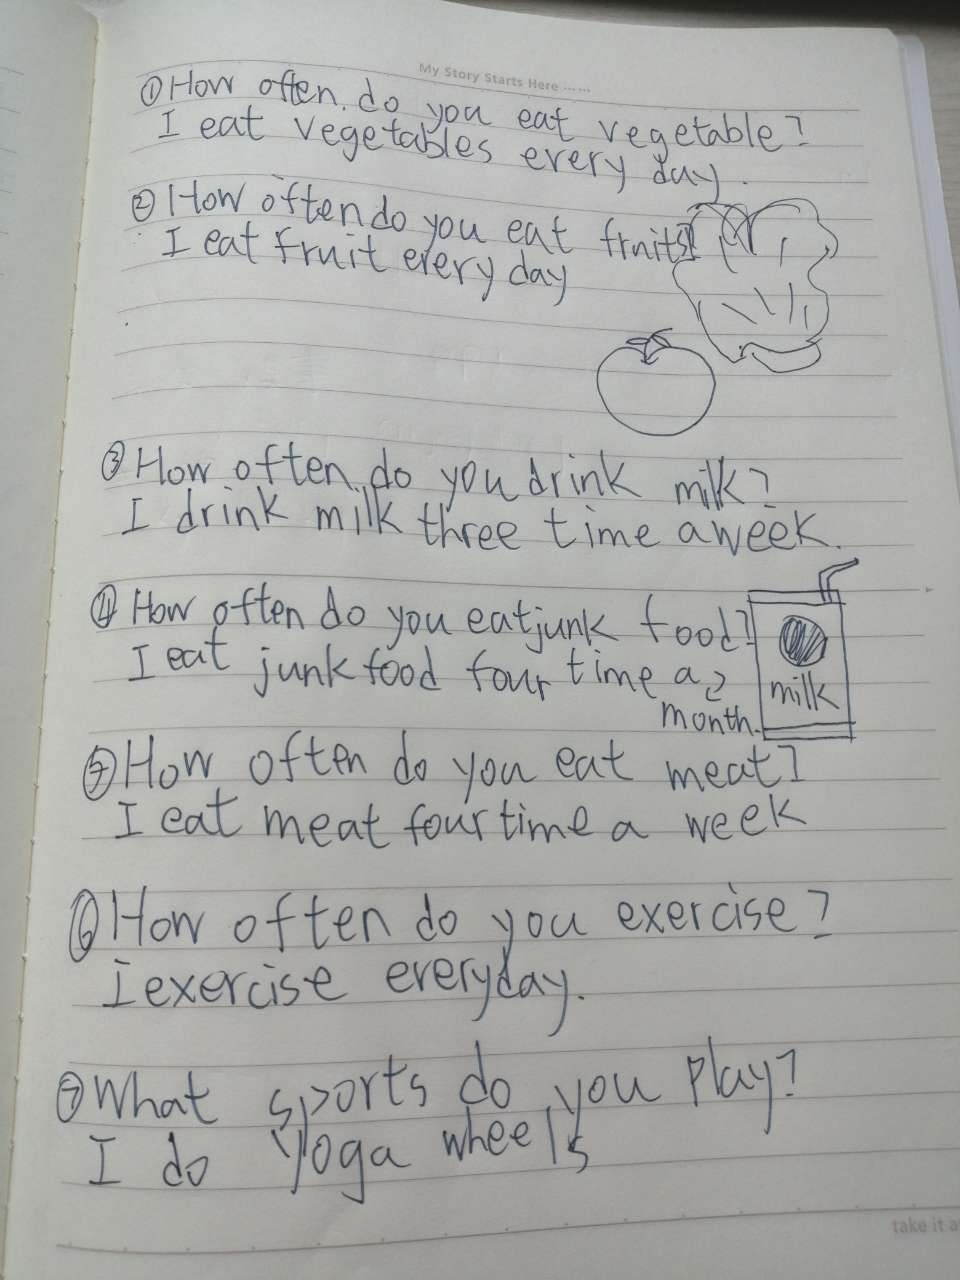 My Story Starts Here ......
①How often do you eat vegetable?
I eat vegetables every day.
②How often do you eat fruits?
I eat fruit every day
③How often do you drink milk?
I drink milk three time a week.
④How often do you eat junk food?
I eat junk food four time a
month.
milk
⑤How often do you eat meat?
I eat meat four time a week
⑥How often do you exercise?
I exercise everyday.
⑦What sports do you play?
I do yoga wheels
take it